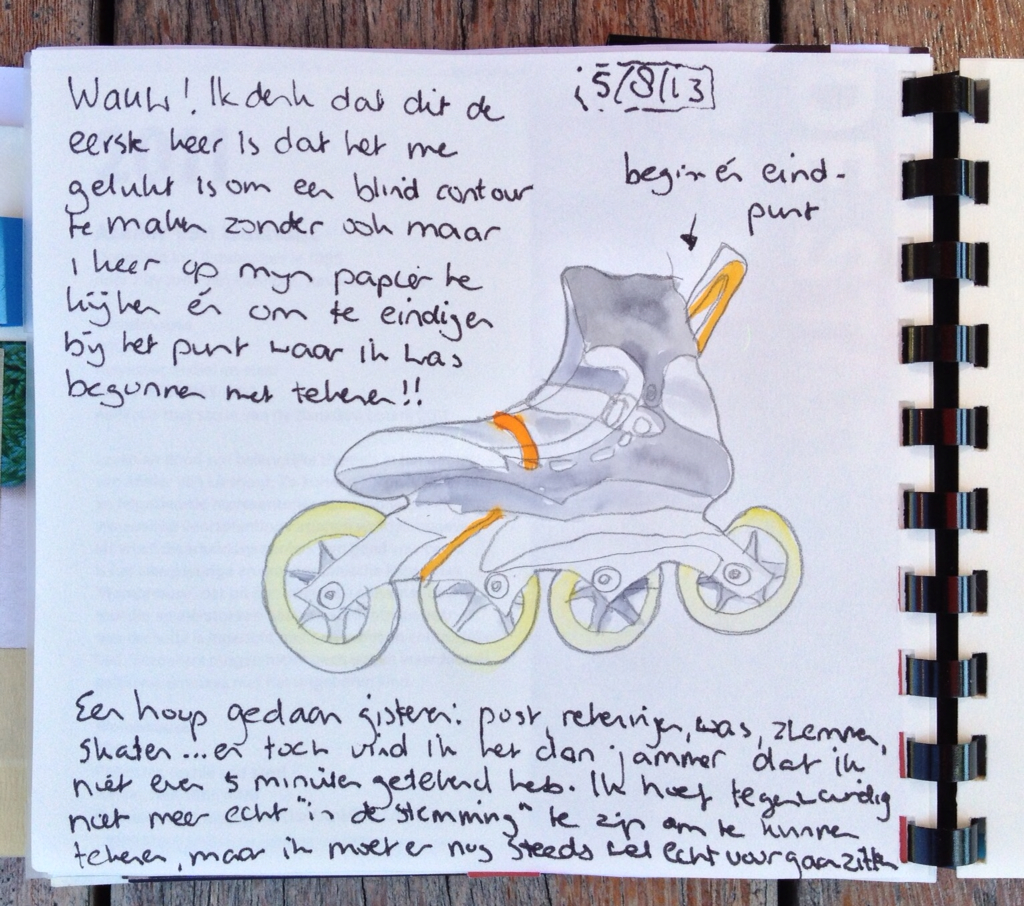 Wauw! Ik denk dat dit de
eerste keer is dat het me
gelukt is om een blind contour
te maken zonder ook maar
1 keer op mijn papier te
kijken én om te eindigen
bij het punt waar ik was
begonnen met tekenen!!
5/8/13
begin én eind-
punt
Een hoop gedaan gisteren: post, rekeningen, was, zwemmen,
skaten... en toch vind ik het dan jammer dat ik
niet even 5 minuten getekend heb. Ik hoef tegenwoordig
niet meer echt "in de stemming" te zijn om te kunnen
tekenen, maar ik moet er nog steeds wel echt voor gaan zitten